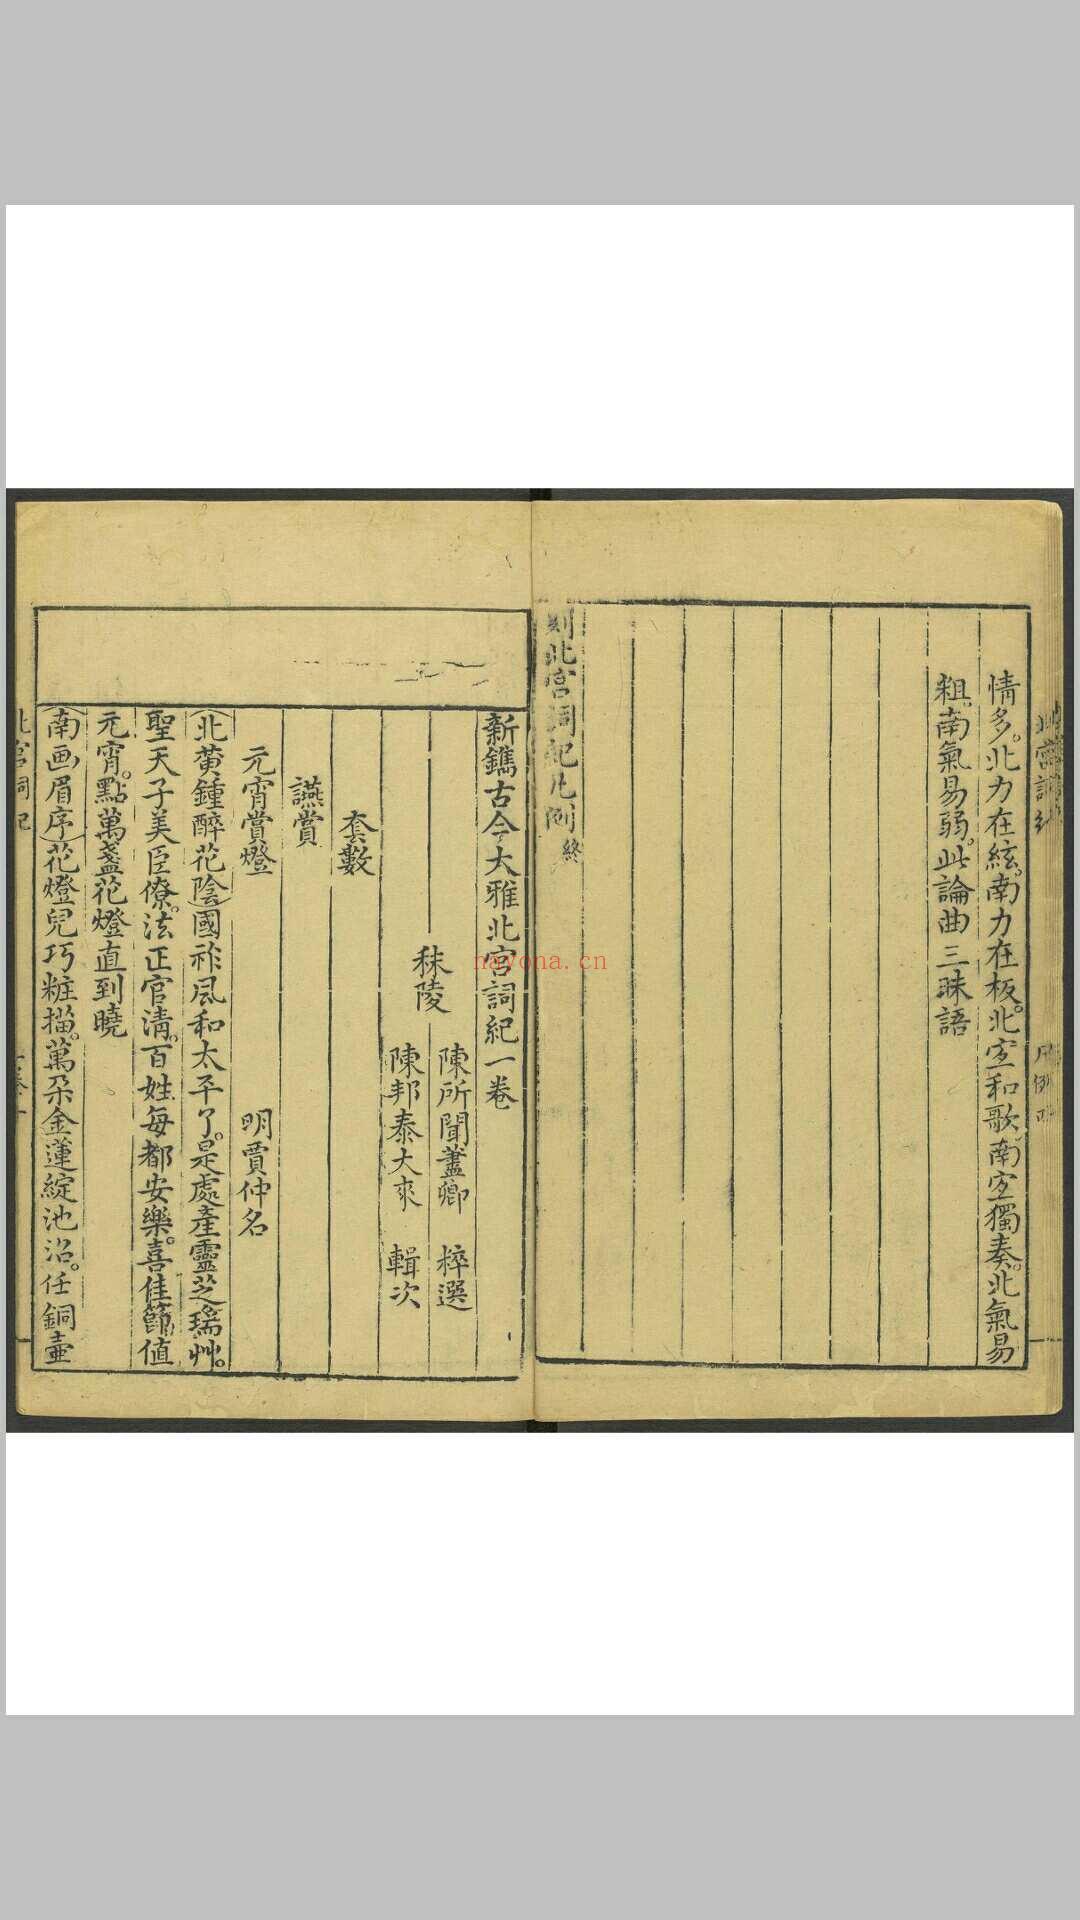 情多。北力在絃。南力在板。北宜和歌。南宜獨奏。北氣易
粗。南氣易弱。此論曲三昧語
刻北宮詞紀凡例終
新鐫古今大雅北宮詞紀一卷
秣陵
陳所聞藎卿 粹選
陳邦泰大來 輯次
套數
讌賞
元宵賞燈 明賈仲名
（北黃鍾醉花陰）國祚風和太平了。是處產靈芝瑞艸。
聖天子美臣僚。法正官清。百姓每都安樂。喜佳節值
元宵。點萬盞花燈直到曉
（南画眉序）花燈兒巧粧描。萬朵金蓮綻池沼。任銅壺
北宮詞紀
nayona.cn